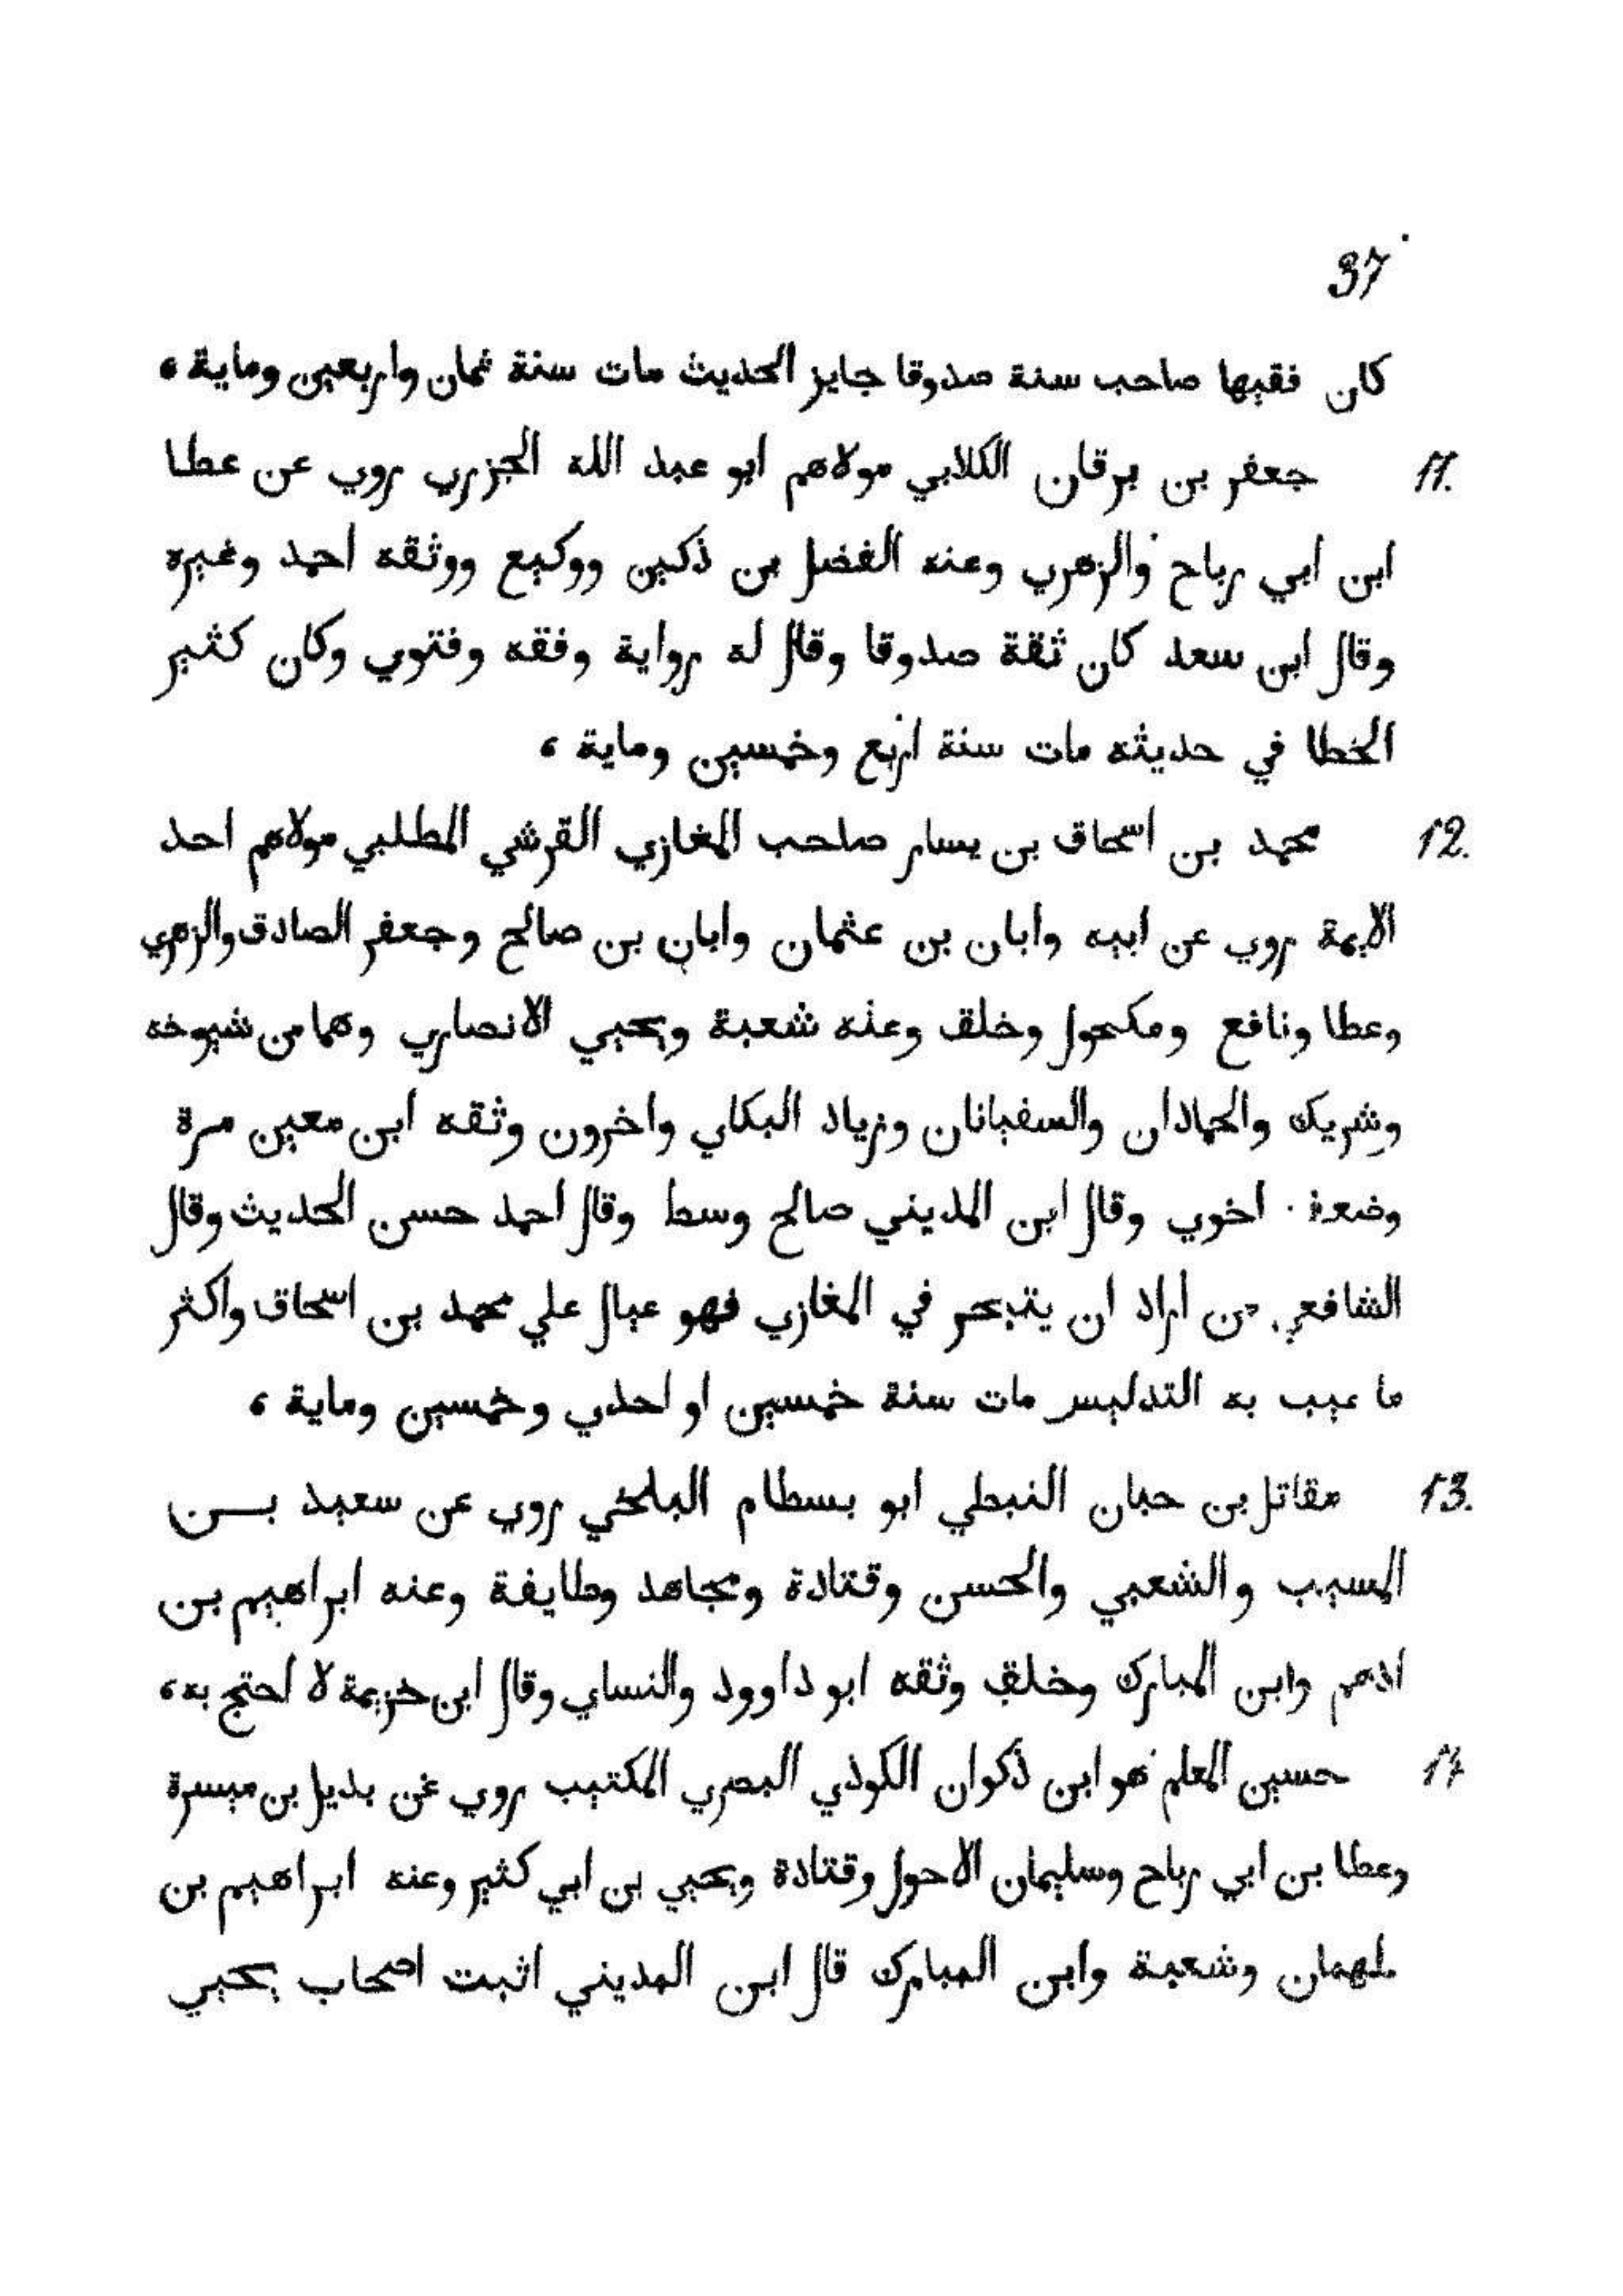 37
كان فقيها صاحب سنة صدوقا جايز الحديث مات سنة ثمان واربعين وماية ،
11. جعفر بن برقان الكلابي مولاهم ابو عبد الله الجزري روي عن عطا
ابن ابي رباح والزهري وعنه الفضل بن ذكين ووكيع ووثقه احمد وغيره
وقال ابن سعد كان ثقة صدوقا وقال له رواية وفقه وفتوي وكان كثير
الخطا في حديثه مات سنة اربع وخمسين وماية ،
12. محمد بن اسحاق بن يسار صاحب المغازي القرشي المطلبي مولاهم احد
الايمة روي عن ابيه وابان بن عثمان وابان بن صالح وجعفر الصادق والزهري
وعطا ونافع ومكحول وخلق وعنه شعبة ويحيي الانصاري وهما من شيوخه
وشريك والحمادان والسفيانان وزياد البكاي واخرون وثقه ابن معين مرة
اخري وقال ابن المديني صالح وسط وقال احمد حسن الحديث وقال
الشافعي من اراد ان يتبحر في المغازي فهو عيال علي محمد بن اسحاق واكثر
ما عيب به التدليس مات سنة خمسين او احدي وخمسين وماية ،
13. مقاتل بن حيان النبطي ابو بسطام البلخي روي عن سعيد بن
المسيب والشعبي والحسن وقتادة ومجاهد وطايفة وعنه ابراهيم بن
ادهم وابن المبارك وخلق وثقه ابو داوود والنساي وقال ابن خزيمة لا احتج به ،
14 حسين المعلم هو ابن ذكوان الكوذي البصري المكتيب روي عن بديل بن ميسرة
وعطا بن ابي رباح وسليمان الاحول وقتادة ويحيي بن ابي كثير وعنه ابراهيم بن
طهمان وشعبة وابن المبارك قال ابن المديني اثبت اصحاب يحيي